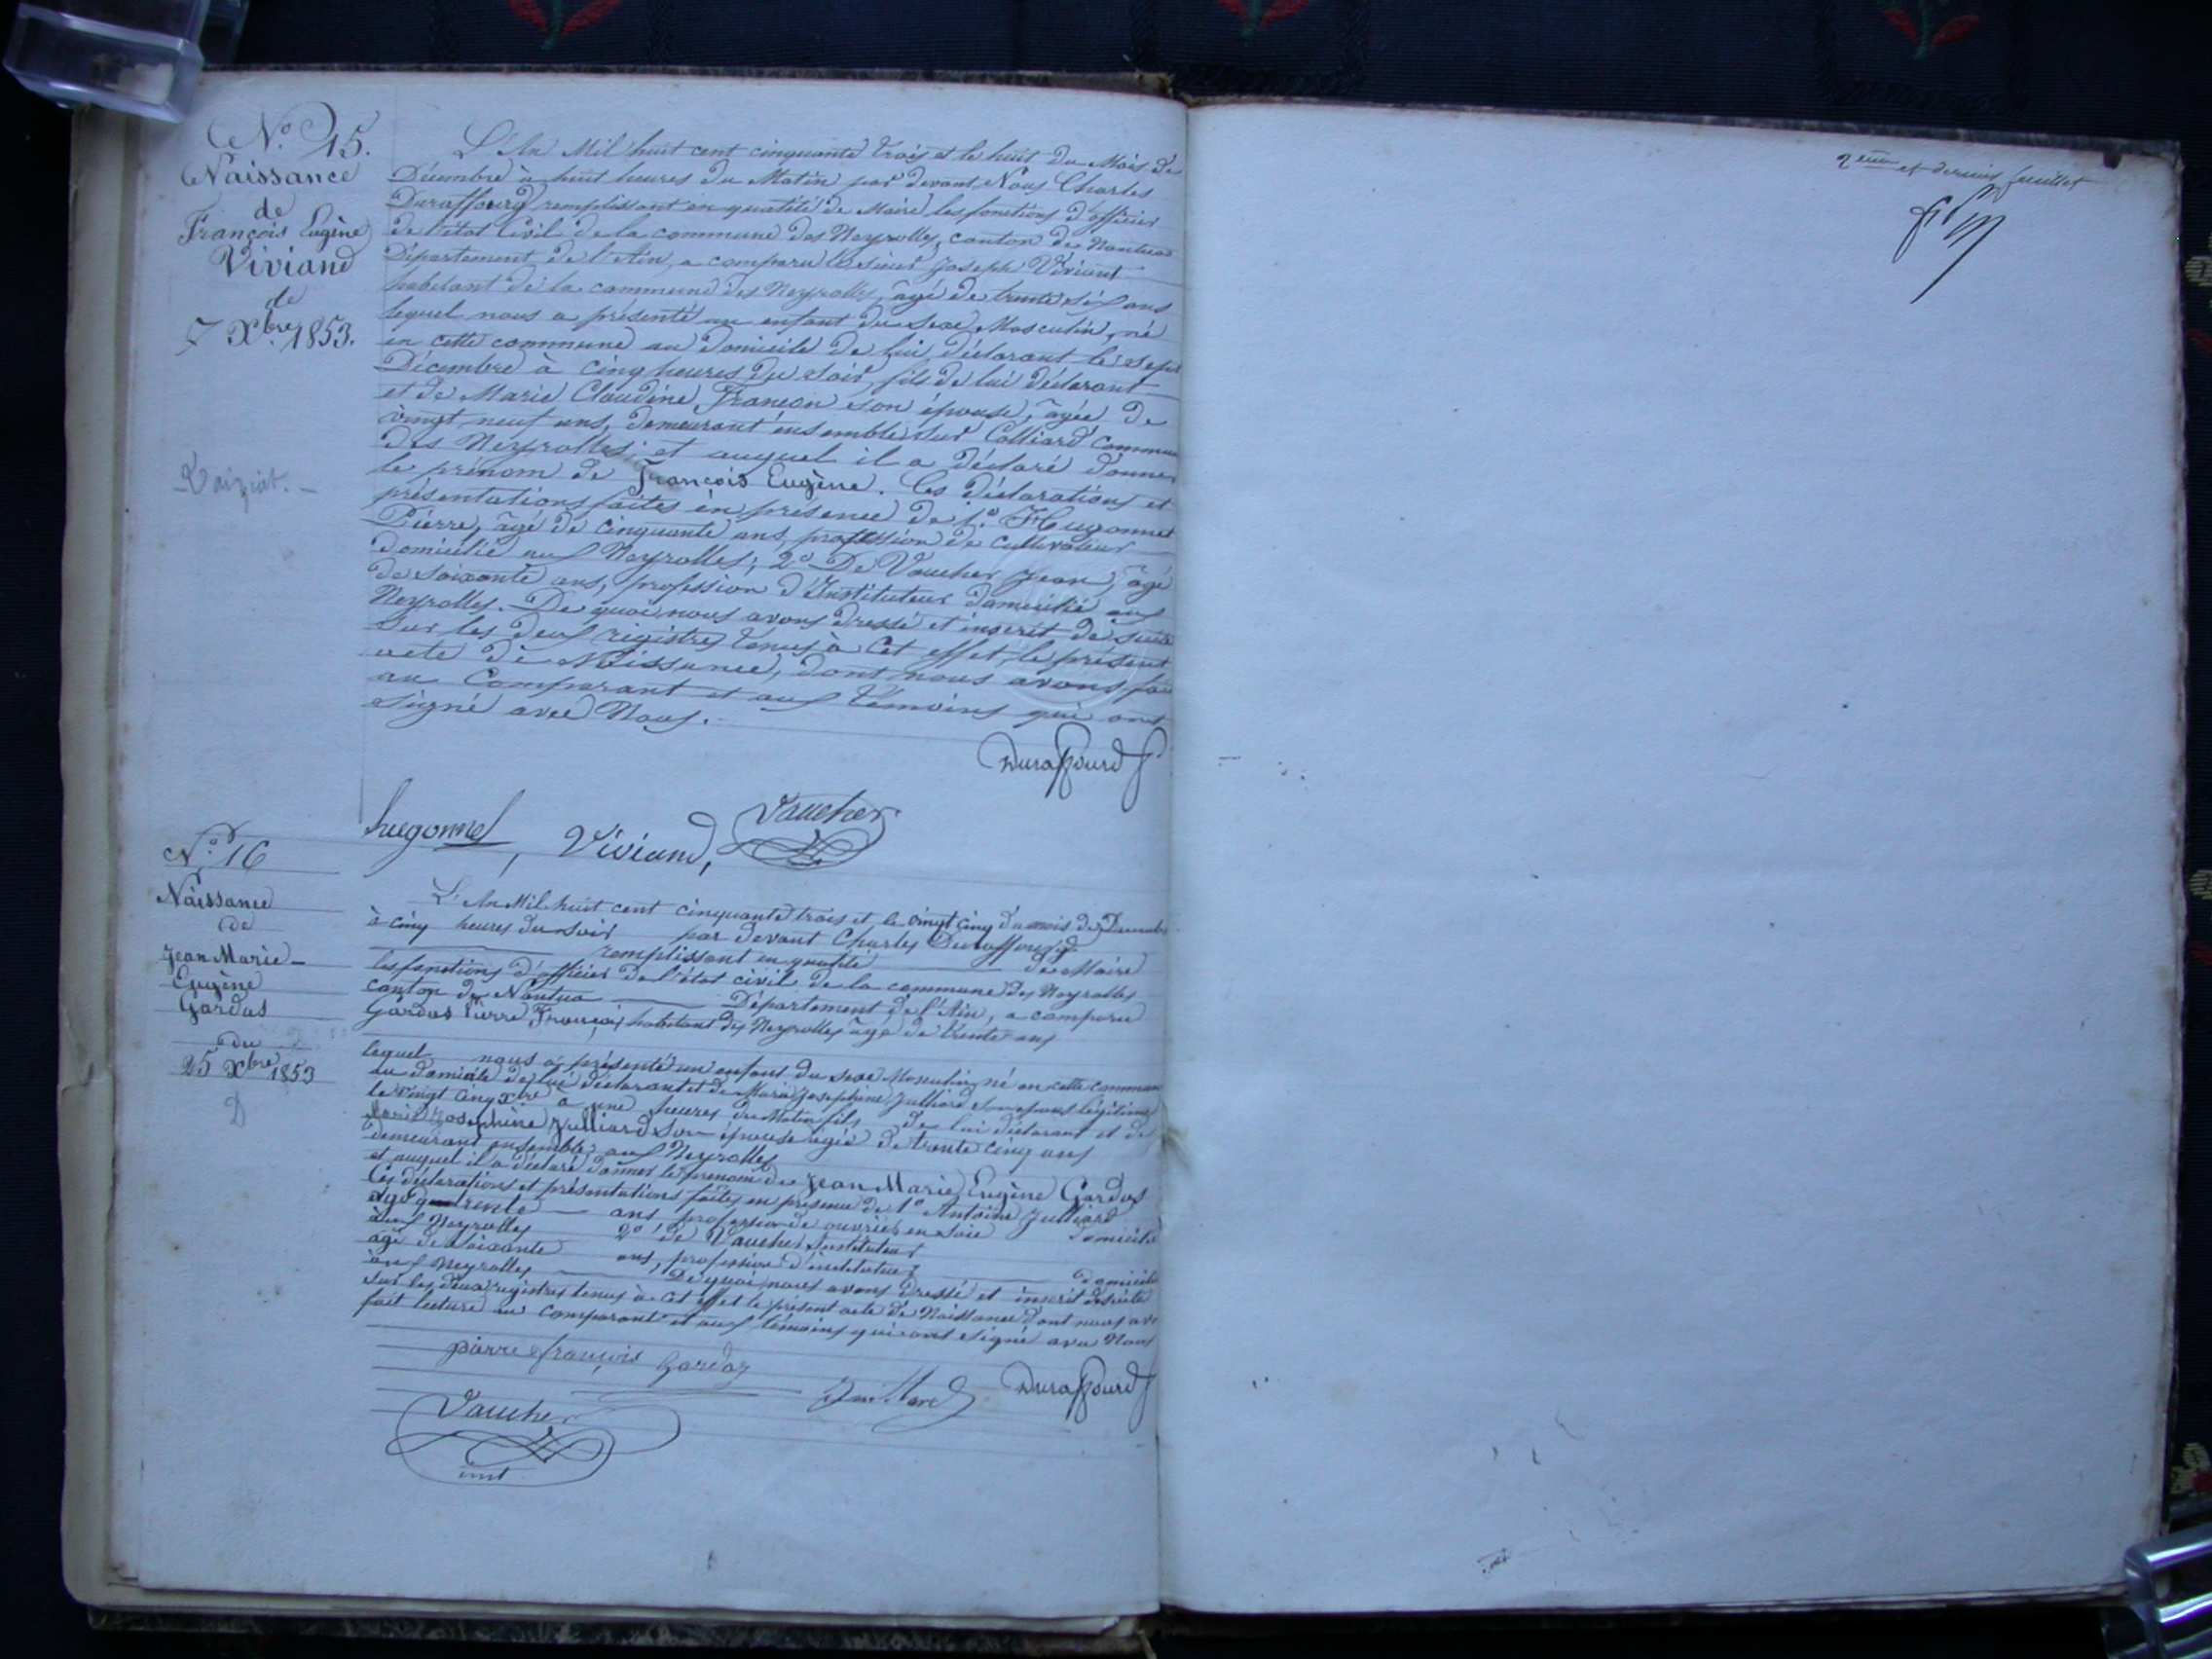 N.º 15.
Naissance
de
François Eugène
Viviand
de
7 Xbre 1853.
L'An Mil huit cent cinquante trois et le huit du Mois de
Décembre à huit heures du Matin par devant Nous Charles
Duraffourg remplissant en qualité de Maire les fonctions d'officier
de l'état Civil de la commune des Neyrolles, canton de Nantua
Département de l'Ain, a comparu le sieur Joseph Viviand
habitant de la commune des Neyrolles, âgé de trente six ans
lequel nous a présenté un enfant du sexe Masculin, né
en cette commune au domicile de lui déclarant le sept
Décembre à cinq heures du soir, fils de lui déclarant
et de Marie Claudine Françon son épouse, âgée de
vingt neuf ans, demeurant ensemble sur Colliard commune
des Neyrolles; et auquel il a déclaré donner
le prénom de François Eugène. Ces déclarations et
présentations faites en présence de 1º Hugonnet
Pierre, âgé de cinquante ans, profession de cultivateur
domicilié aux Neyrolles; 2º De Vaucher Jean, âgé
de soixante ans, profession d'Instituteur domicilié aux
Neyrolles. De quoi nous avons dressé et inscrit de suite
sur les deux registres tenus à cet effet, le présent
acte de Naissance, dont nous avons fait
au Comparant et aux témoins qui ont
signé avec Nous.
Duraffourd
hugonnet, Viviand, Vaucher
Nº 16
Naissance
de
Jean Marie
Eugène
Gardas
du
25 Xbre 1853
D
L'An Mil huit cent cinquante trois et le vingt cinq du mois de Décembre
à cinq heures du soir par devant Charles Duraffourg
remplissant en qualité de Maire
les fonctions d'officier de l'état civil de la commune des Neyrolles
canton de Nantua Département de l'Ain, a comparu
Gardas Pierre François habitant des Neyrolles âgé de trente ans
lequel nous a présenté un enfant du sexe Masculin né en cette commune
au domicile de lui déclarant et de Marie Josephine Julliard son épouse légitime
le vingt cinq Xbre à une heures du Matin fils de lui déclarant et de
Marie Josephine Julliard son épouse âgée de trente cinq ans
demeurant ensemble aux Neyrolles
et auquel il a déclaré donner le prénom de Jean Marie Eugène Gardas
Ces déclarations et présentations faites en présence de 1º Antoine Julliard
âgé trente ans profession de ouvrier en soie domicilié
aux Neyrolles 2º de Vaucher Instituteur
âgé de soixante ans, profession d'instituteur domicilié
aux Neyrolles De quoi nous avons dressé et inscrit de suite
sur les deux registres tenus à cet effet le présent acte de Naissance dont nous avons
fait lecture au comparant et aux témoins qui ont signé avec Nous
pierre françois gardaz
Duraffourd
Vaucher
inst
2ème et dernier feuillet